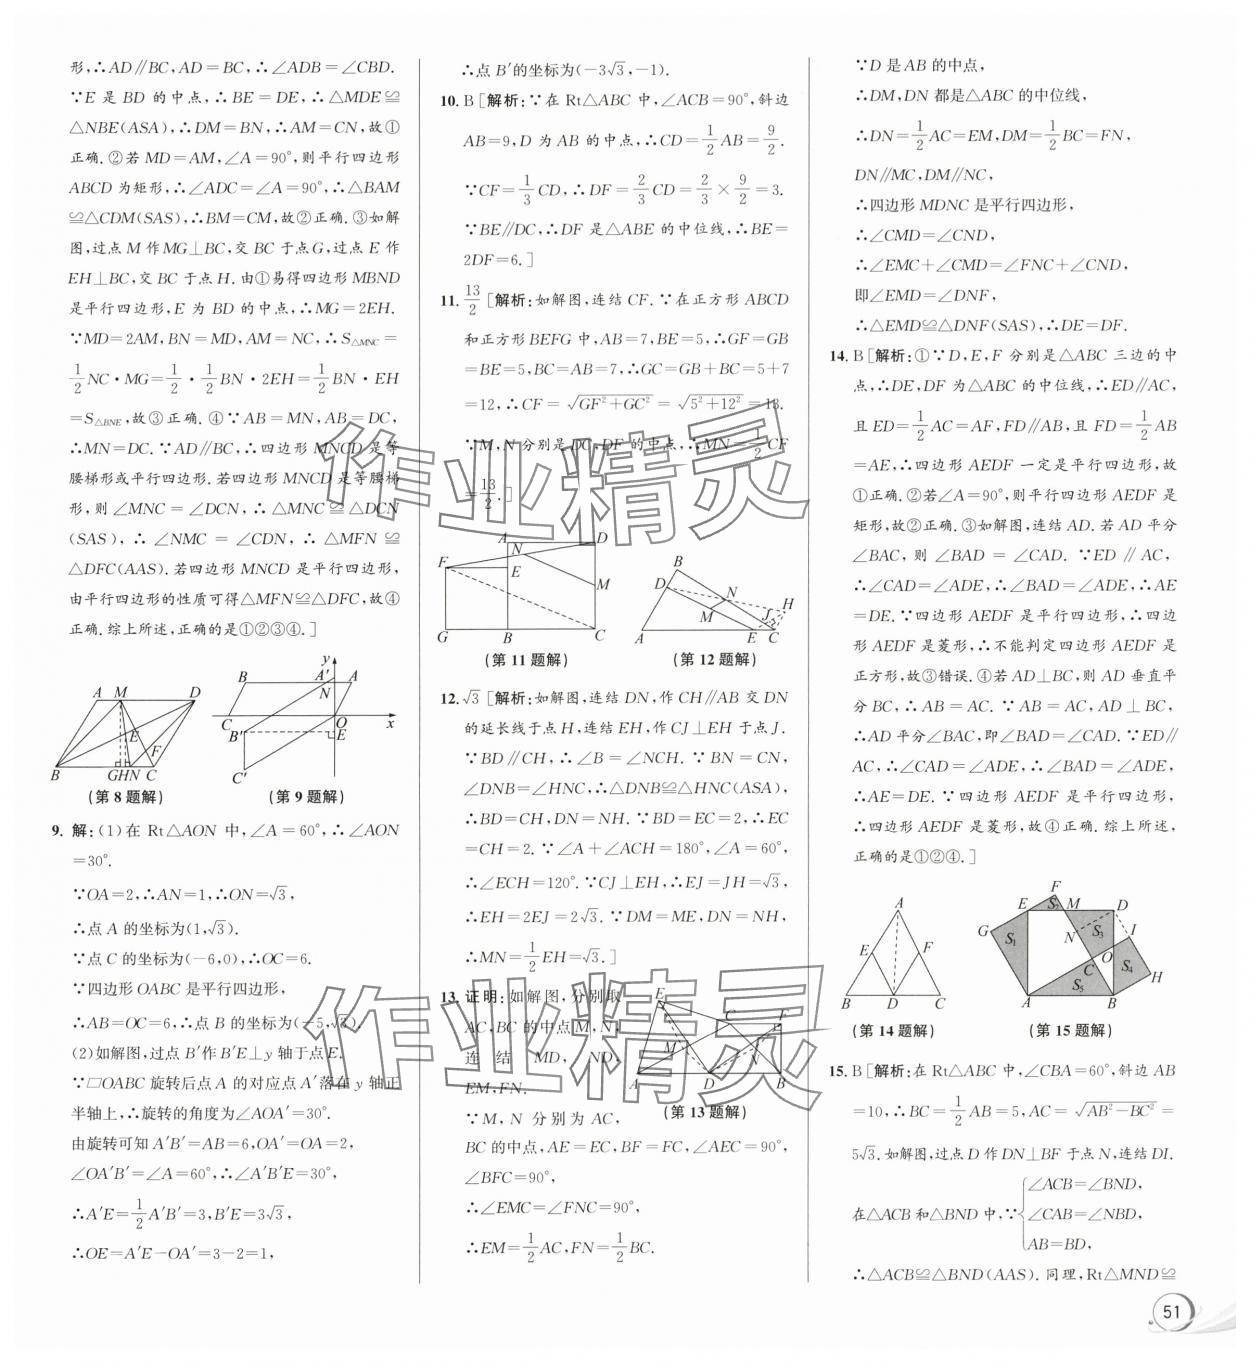 形,∴AD∥BC,AD=BC,∴∠ADB=∠CBD.
∵E 是 BD 的中点,∴BE=DE,∴△MDE≌
△NBE(ASA),∴DM=BN,∴AM=CN,故①
正确.②若 MD=AM,∠A=90°,则平行四边形
ABCD 为矩形,∴∠ADC=∠A=90°,∴△BAM
≌△CDM(SAS),∴BM=CM,故②正确.③如解
图,过点 M 作 MG⊥BC,交 BC 于点 G,过点 E 作
EH⊥BC,交 BC 于点 H.由①易得四边形 MBND
是平行四边形,E 为 BD 的中点,∴MG=2EH.
∵MD=2AM,BN=MD,AM=NC,∴S△MNC=
1/2 NC·MG=1/2·1/2 BN·2EH=1/2 BN·EH
=S△BNE,故③正确.④∵AB=MN,AB=DC,
∴MN=DC.∵AD∥BC,∴四边形 MNCD 是等
腰梯形或平行四边形.若四边形 MNCD 是等腰梯
形,则∠MNC=∠DCN,∴△MNC≌△DCN
(SAS),∴∠NMC=∠CDN,∴△MFN≌
△DFC(AAS).若四边形 MNCD 是平行四边形,
由平行四边形的性质可得△MFN≌△DFC,故④
正确.综上所述,正确的是①②③④.]
A M D E F B G H N C
(第 8 题解)
y B A′ A N C O x B′ E C′
(第 9 题解)
9. 解:(1)在 Rt△AON 中,∠A=60°,∴∠AON
=30°.
∵OA=2,∴AN=1,∴ON=√3,
∴点 A 的坐标为(1,√3).
∵点 C 的坐标为(-6,0),∴OC=6.
∵四边形 OABC 是平行四边形,
∴AB=OC=6,∴点 B 的坐标为(-5,√3).
(2)如解图,过点 B′作 B′E⊥y 轴于点 E.
∵▱OABC 旋转后点 A 的对应点 A′落在 y 轴正
半轴上,∴旋转的角度为∠AOA′=30°.
由旋转可知 A′B′=AB=6,OA′=OA=2,
∠OA′B′=∠A=60°,∴∠A′B′E=30°,
∴A′E=1/2 A′B′=3,B′E=3√3,
∴OE=A′E-OA′=3-2=1,
∴点 B′的坐标为(-3√3,-1).
10. B [解析:∵在 Rt△ABC 中,∠ACB=90°,斜边
AB=9,D 为 AB 的中点,∴CD=1/2 AB=9/2.
∵CF=1/3 CD,∴DF=2/3 CD=2/3×9/2=3.
∵BE∥DC,∴DF 是△ABE 的中位线,∴BE=
2DF=6.]
11. 13/2 [解析:如解图,连结 CF.∵在正方形 ABCD
和正方形 BEFG 中,AB=7,BE=5,∴GF=GB
=BE=5,BC=AB=7,∴GC=GB+BC=5+7
=12,∴CF=√(GF²+GC²)=√(5²+12²)=13.
∵M,N 分别是 DC,DF 的中点,∴MN=1/2 CF
=13/2.]
A D N F E M G B C
(第 11 题解)
B D N H M J A E C
(第 12 题解)
12. √3 [解析:如解图,连结 DN,作 CH∥AB 交 DN
的延长线于点 H,连结 EH,作 CJ⊥EH 于点 J.
∵BD∥CH,∴∠B=∠NCH.∵BN=CN,
∠DNB=∠HNC,∴△DNB≌△HNC(ASA),
∴BD=CH,DN=NH.∵BD=EC=2,∴EC
=CH=2.∵∠A+∠ACH=180°,∠A=60°,
∴∠ECH=120°.∵CJ⊥EH,∴EJ=JH=√3,
∴EH=2EJ=2√3.∵DM=ME,DN=NH,
∴MN=1/2 EH=√3.]
13. 证明:如解图,分别取
AC,BC 的中点 M,N,
连结 MD,ND,
EM,FN.
E C F M N A D B
(第 13 题解)
∵M,N 分别为 AC,
BC 的中点,AE=EC,BF=FC,∠AEC=90°,
∠BFC=90°,
∴∠EMC=∠FNC=90°,
∴EM=1/2 AC,FN=1/2 BC.
∵D 是 AB 的中点,
∴DM,DN 都是△ABC 的中位线,
∴DN=1/2 AC=EM,DM=1/2 BC=FN,
DN∥MC,DM∥NC,
∴四边形 MDNC 是平行四边形,
∴∠CMD=∠CND,
∴∠EMC+∠CMD=∠FNC+∠CND,
即∠EMD=∠DNF,
∴△EMD≌△DNF(SAS),∴DE=DF.
14. B [解析:①∵D,E,F 分别是△ABC 三边的中
点,∴DE,DF 为△ABC 的中位线,∴ED∥AC,
且 ED=1/2 AC=AF,FD∥AB,且 FD=1/2 AB
=AE,∴四边形 AEDF 一定是平行四边形,故
①正确.②若∠A=90°,则平行四边形 AEDF 是
矩形,故②正确.③如解图,连结 AD.若 AD 平分
∠BAC,则∠BAD=∠CAD.∵ED∥AC,
∴∠CAD=∠ADE,∴∠BAD=∠ADE,∴AE
=DE.∵四边形 AEDF 是平行四边形,∴四边
形 AEDF 是菱形,∴不能判定四边形 AEDF 是
正方形,故③错误.④若 AD⊥BC,则 AD 垂直平
分 BC,∴AB=AC.∵AB=AC,AD⊥BC,
∴AD 平分∠BAC,即∠BAD=∠CAD.∵ED∥
AC,∴∠CAD=∠ADE,∴∠BAD=∠ADE,
∴AE=DE.∵四边形 AEDF 是平行四边形,
∴四边形 AEDF 是菱形,故④正确.综上所述,
正确的是①②④.]
A E F B D C
(第 14 题解)
F E S₂ M D G S₁ N S₃ I C O S₄ H S₅ A B
(第 15 题解)
15. B [解析:在 Rt△ABC 中,∠CBA=60°,斜边 AB
=10,∴BC=1/2 AB=5,AC=√(AB²-BC²)=
5√3.如解图,过点 D 作 DN⊥BF 于点 N,连结 DI.
在△ACB 和△BND 中,∵{∠ACB=∠BND,
∠CAB=∠NBD,
AB=BD,
∴△ACB≌△BND(AAS).同理,Rt△MND≌
51
作业精灵
作业精灵